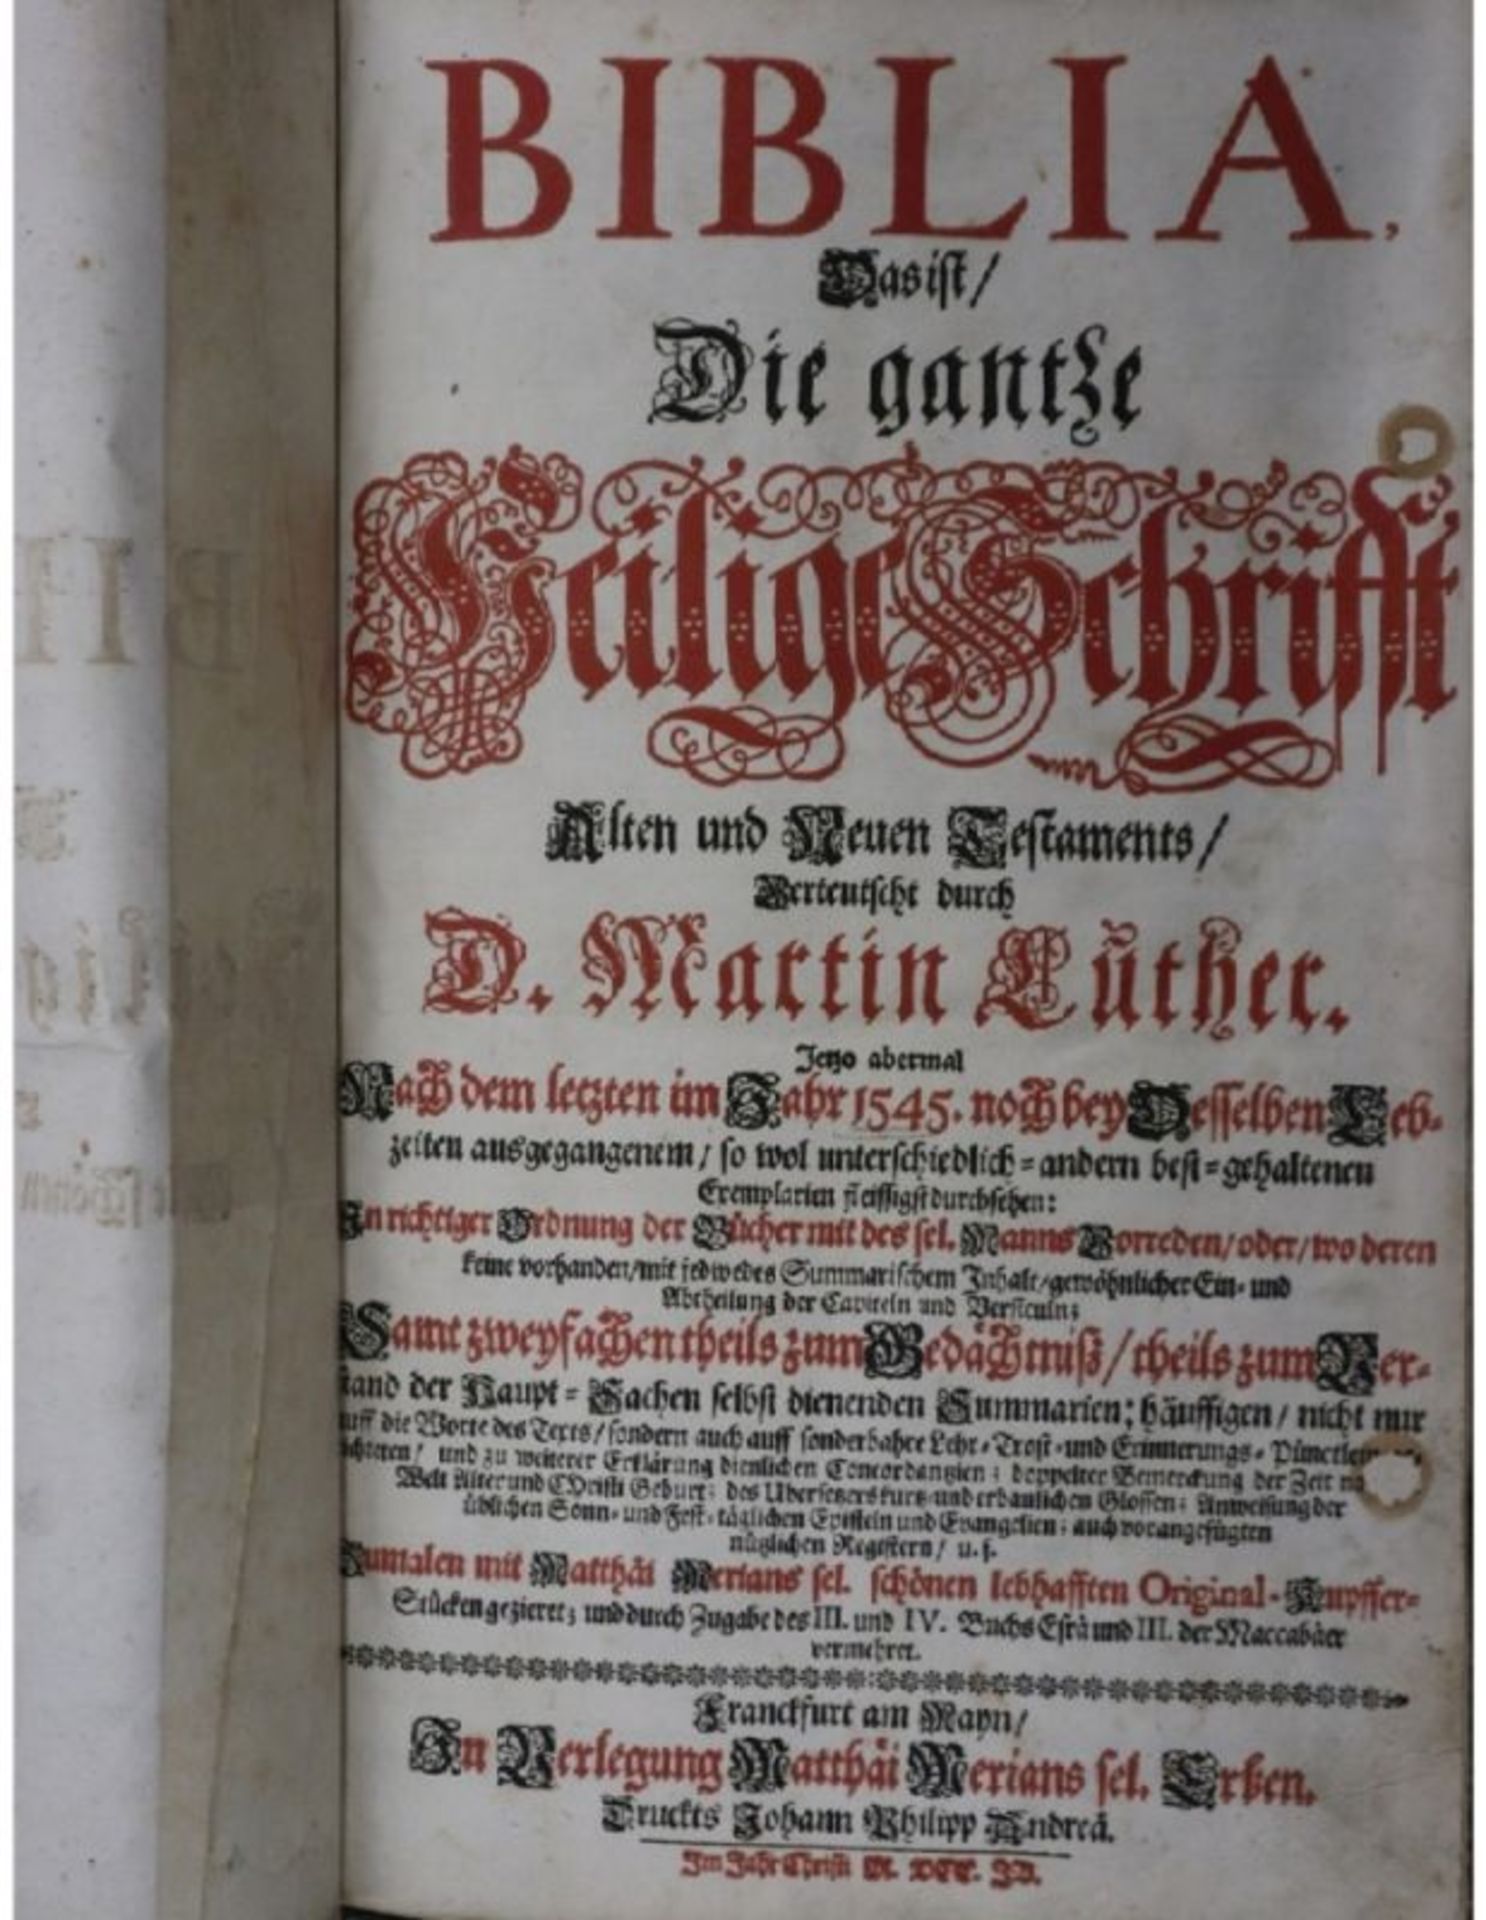 BIBLIA,
Das ist/
Die gantze
Heilige Schrifft
Alten und Neuen Testaments/
Verteutscht durch
D. Martin Luther.
Jetzo abermal
Nach dem letzten im Jahr 1545. noch bey Desselben Leb-
zeiten ausgegangenem / so wol unterschiedlich-andern best-gehaltenen
Exemplarien fleissigst durchsehen:
In richtiger Ordnung der Bücher mit des sel. Manns Vorreden/oder/wo deren
keine vorhanden/mit jedwedes Summarischem Inhalt/gewöhnlicher Ein- und
Abtheilung der Capiteln und Versiculn;
Samt zweyfachen theils zum Gedächtniß / theils zum Ver-
stand der Haupt-Sachen selbst dienenden Summarien; häuffigen / nicht nur
auff die Worte des Texts/sondern auch auff sonderbahre Lehr-Trost-und Erinnerungs-Pünctlein
und zu weiterer Erklärung dienlichen Concordantzien; doppelter Bemerckung der Zeit
Welt Alter und Christi Geburt; des Ubersetzers kurtz-und erbaulichen Glossen; Anweisung der
üblichen Sonn-und Fest-täglichen Episteln und Evangelien; auch vorangefügten
nützlichen Registern/ u.f.
Zumalen mit Matthäi Merians sel. schönen lebhafften Original-Kupffer-
Stücken gezieret; und durch Zugabe des III. und IV. Buchs Esrä und III. der Maccabäer
vermehret.
Franckfurt am Mayn/
In Verlegung Matthäi Merians sel. Erben.
Druckts Johann Philipp Andreä.
Im Jahr Christi